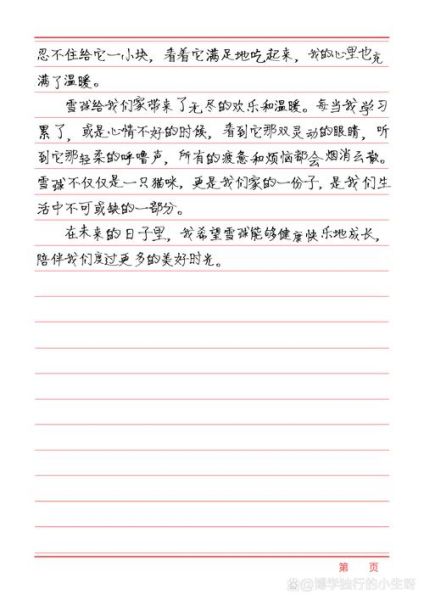 忍不住给它一小块，看着它满足地吃起来，我的心里也充
满了温暖。
雪球给我们家带来了无尽的欢乐和温暖。每当我学习
累了，或是心情不好的时候，看到它那双灵动的眼睛，听
到它那轻柔的呼噜声，所有的疲惫和烦恼都会烟消云散。
雪球不仅仅是一只猫咪，更是我们家的一份子，是我们生
活中不可或缺的一部分。
在未来的日子里，我希望雪球能够健康快乐地成长，
陪伴我们度过更多的美好时光。
第 页
@博学独行的小生呀